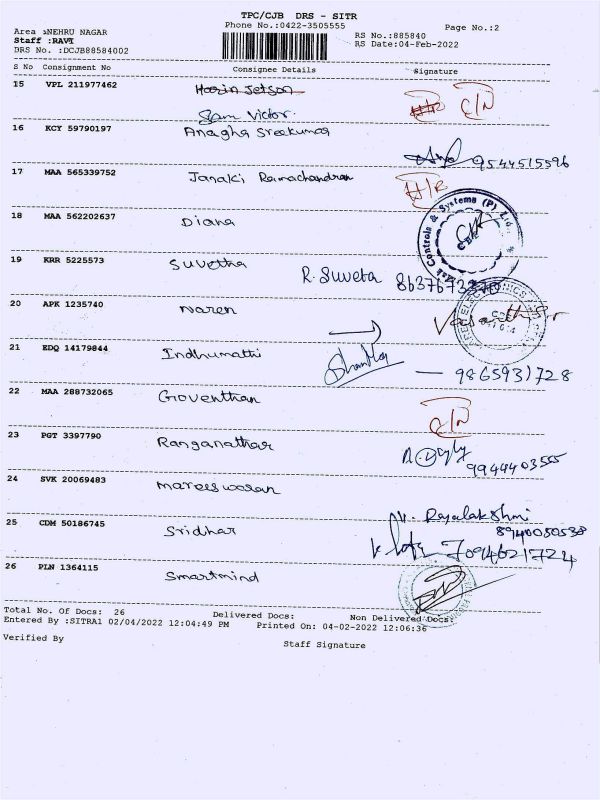 TPC/CJB DRS - SITR
Phone No.:0422-3505555
Page No.:2
Area :NEHRU NAGAR
Staff :RAVI
DRS No. :DCJB88584002
RS No.:885840
RS Date:04-Feb-2022
S No Consignment No Consignee Details Signature
15 VPL 211977462 Harin Jetson
Sam Victor. C/N
16 KCY 59790197 Anagha Sreekumar
9544515596
17 MAA 565339752 Janaki Ramachandran
18 MAA 562202637 Diana
Controls & Systems (P) Ltd.
19 KRR 5225573 Suvetha
R. Suveta
20 APK 1235740 Naren
21 EDQ 14179844 Indhumathi
9865931728
22 MAA 288732065 Gioventhan
23 PGT 3397790 Ranganathar
9944403555
24 SVK 20069483 Mareeswaran
Rajalakshmi
8940050538
25 CDM 50186745 Sridhar
7094621724
26 PLN 1364115 Smartmind
Total No. Of Docs: 26 Delivered Docs: Non Delivered Docs:
Entered By :SITRA1 02/04/2022 12:04:49 PM Printed On: 04-02-2022 12:06:36
Verified By Staff Signature